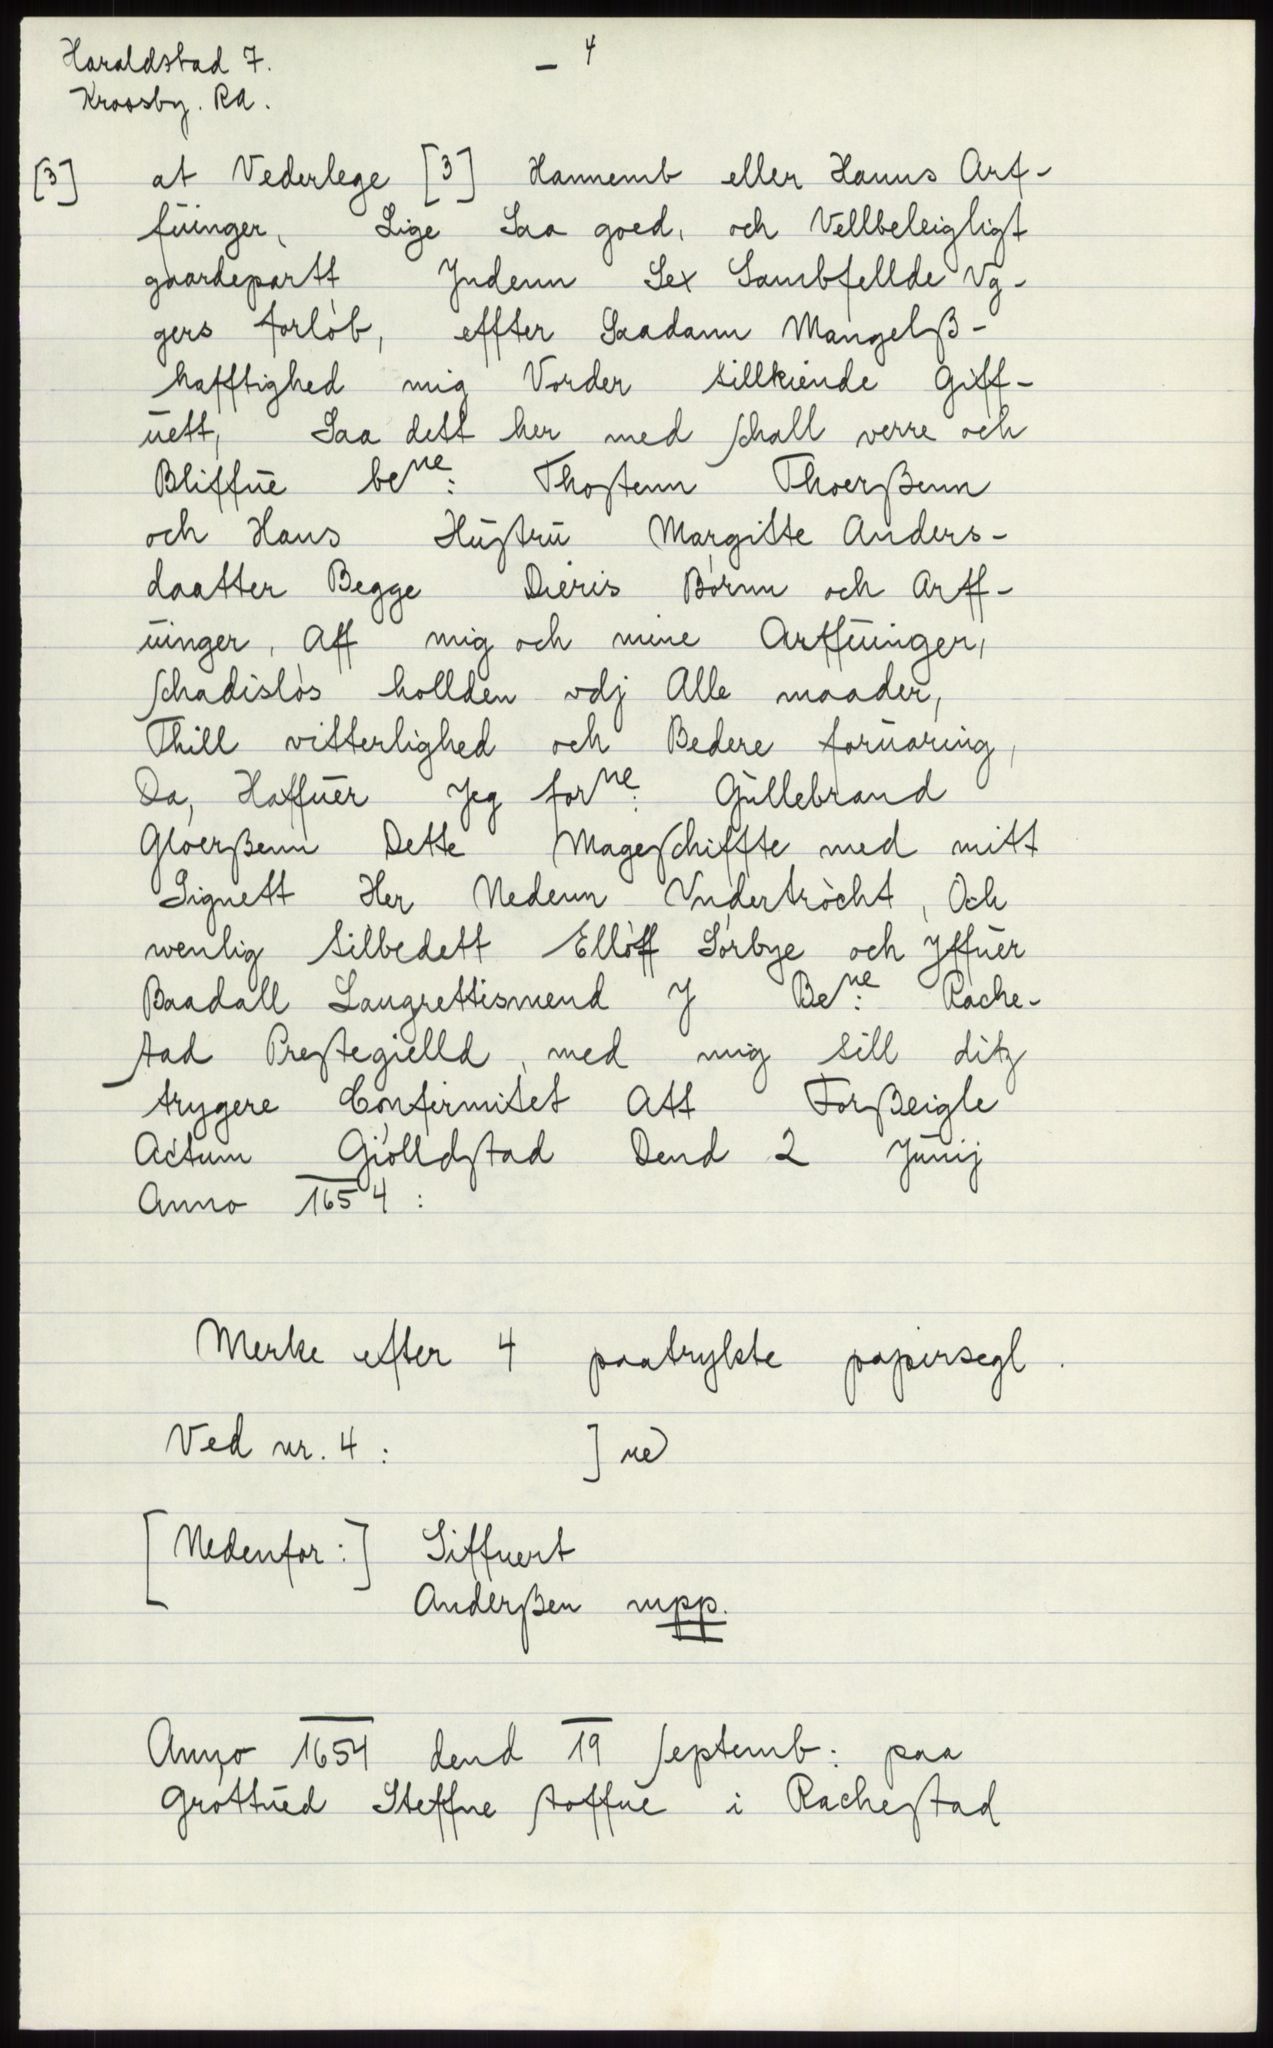 Haraldstad 7. – 4
Kroosby. RA.
[3] at Vederlege [3] Hannemb eller Hanns Arf-
füinger, Lige Saa goed, och Vellbeleigligt
gaardepartt Jndenn Sex Sambfellde Vg-
gers forlòb, effter Saadann Mangelß-
hafftighed mig Vorder tillkiende Giff-
üett, Saa dett her med schall verre och
Bliffüe be ne: Thostenn Thoerßenn
och Hans Hüstrü Margitte Anders-
daatter Begge Dieris Børnn och Arff-
üinger, Aff mig och mine Arffüinger,
schadisløs hollden vdj Alle maader,
Thill vitterlighed och Bedere forüaring,
Da, Haffüer Jeg for ne: Güllebrand
Gloerßenn Dette Mageschiffte med mitt
Signett Her Nedenn Vndertròcht, Och
wenlig tilbedett Ellòff Sørbye och Jffüer
Baadall Laugrettismend J Be ne: Rache-
stad Prestegielld, med mig till ditz
trygere Confirmitet Att Forßeigle
Actum Giòlldstad Dend 2 Jünij
Anno 1654:
Merke efter 4 paatrykte papirsegl.
Ved nr. 4: ] ne
[Nedenfor:] Siffuert
Anderßen mpp.
Anno 1654 dend 19 septemb: paa
Grøttüed Steffne stoffüe i Rachestad